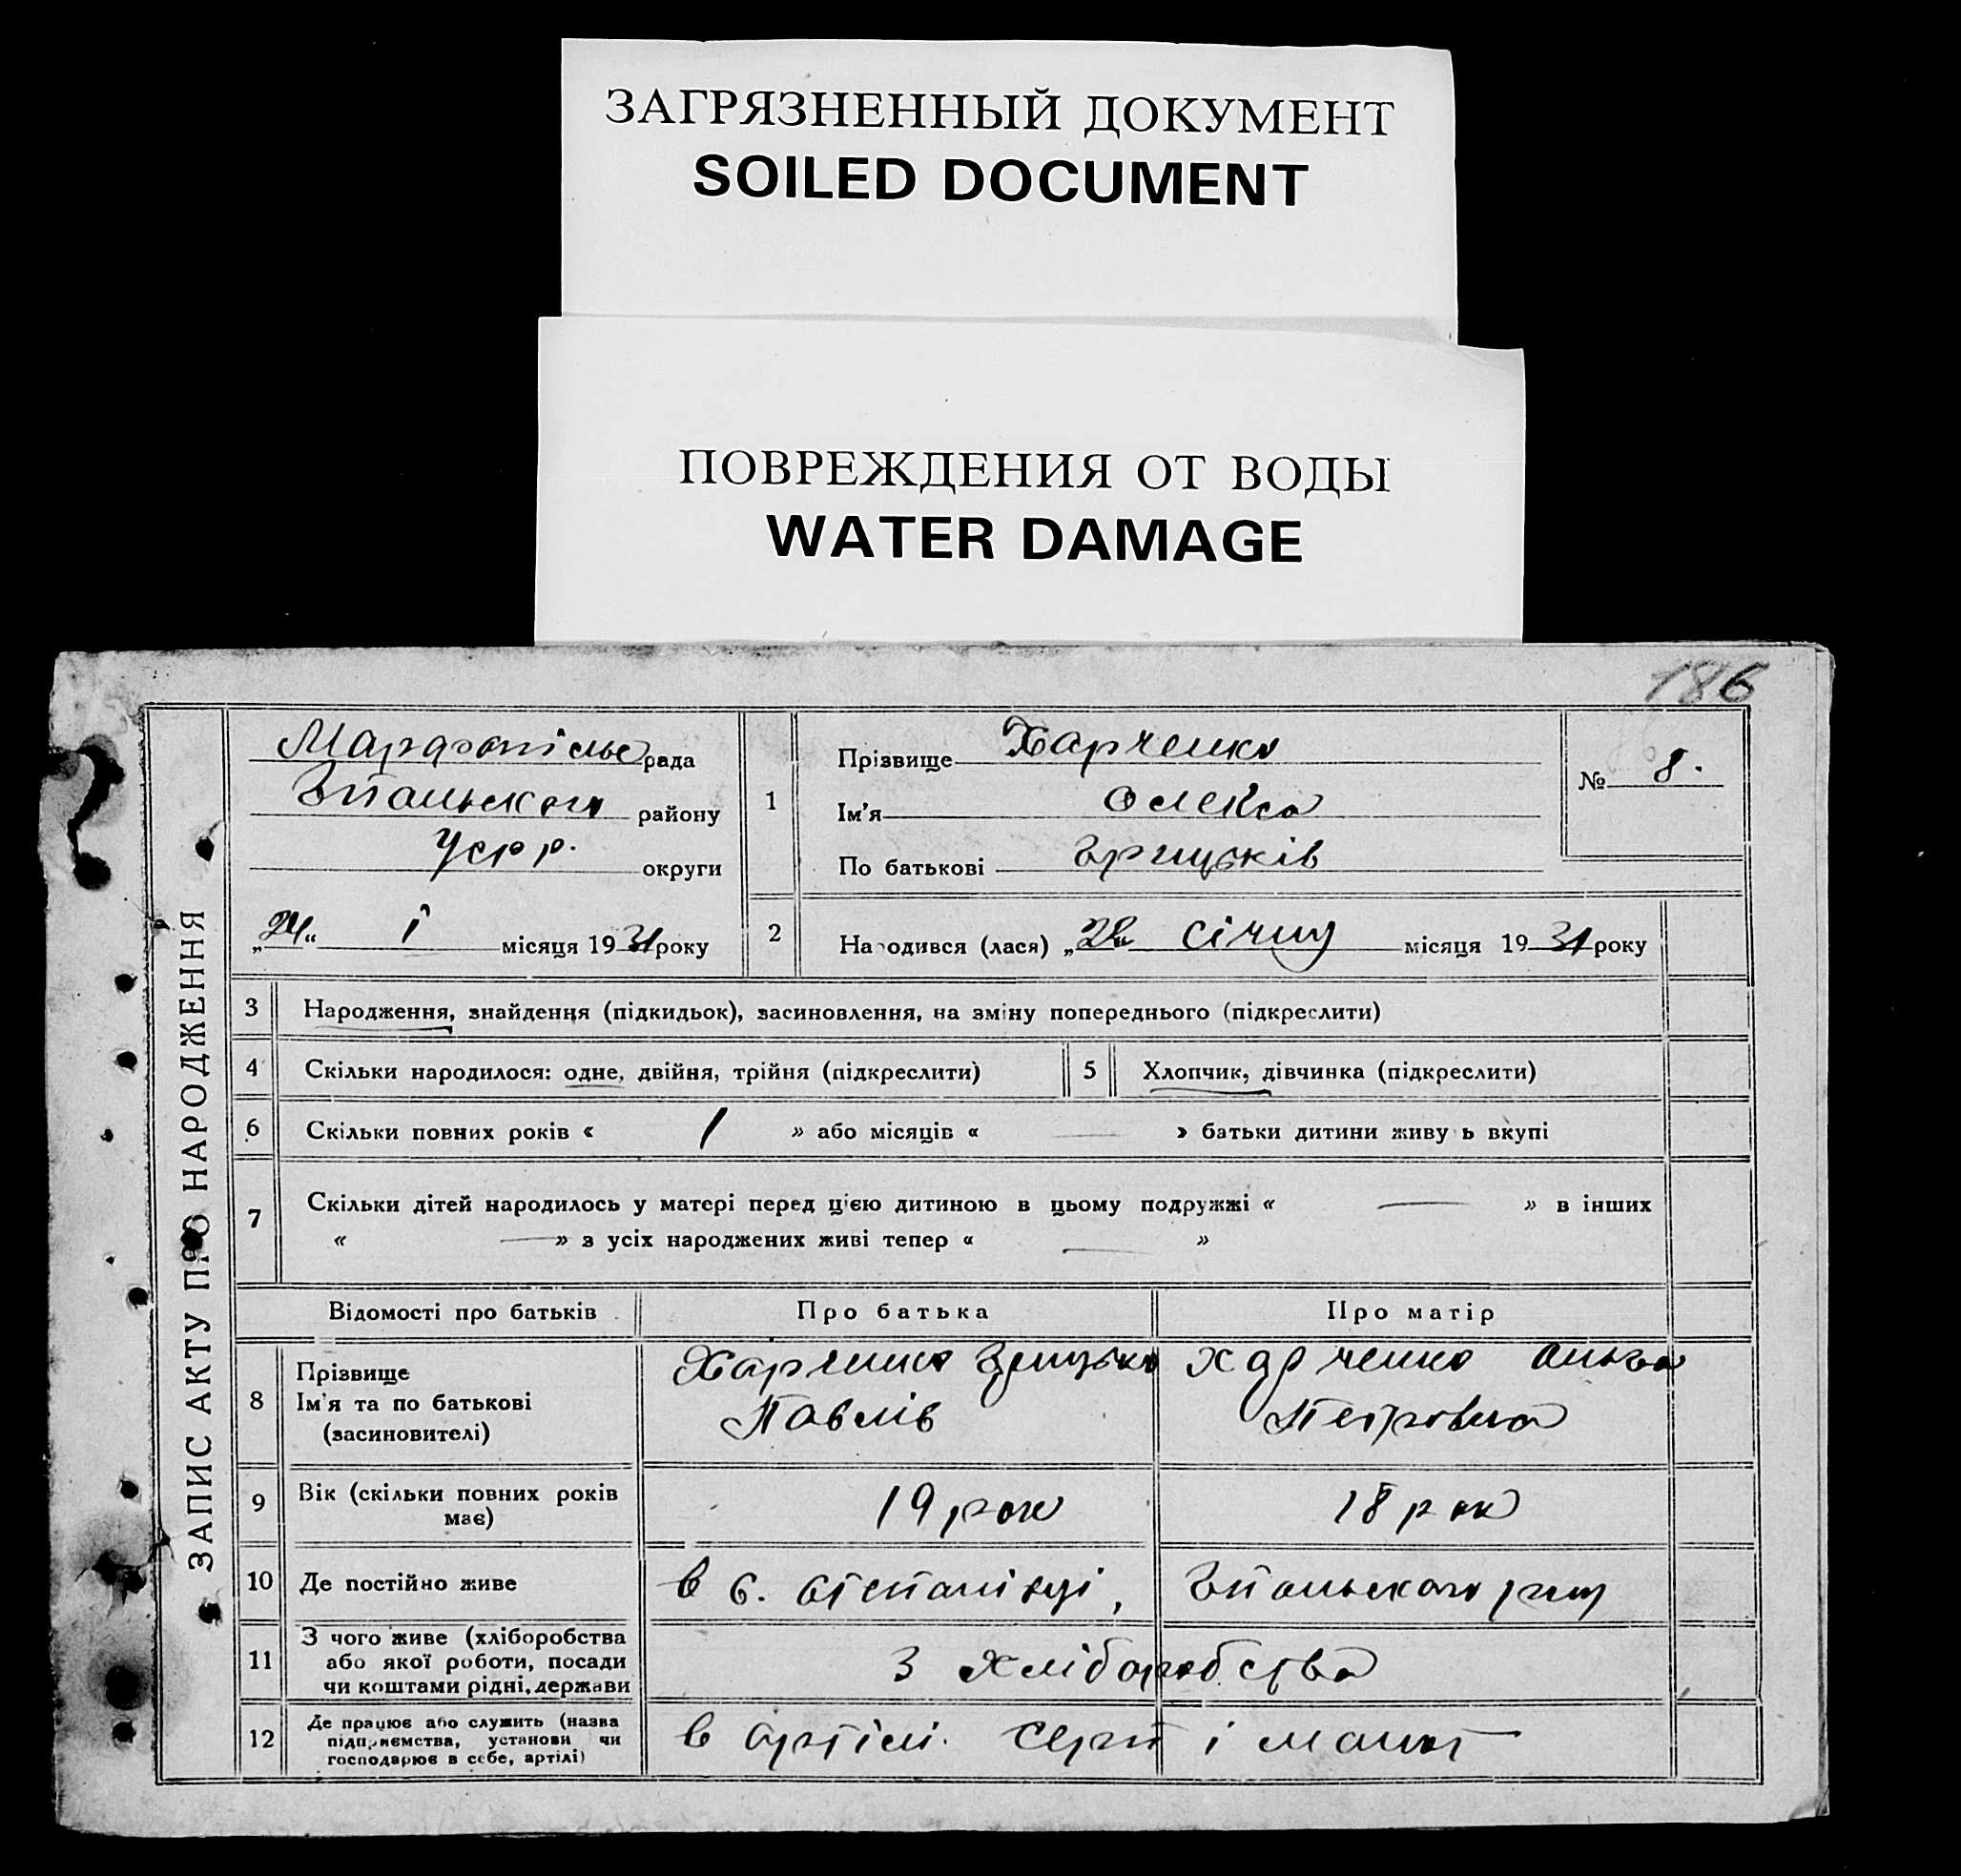 ЗАГРЯЗНЕННЫЙ ДОКУМЕНТ
SOILED DOCUMENT
ПОВРЕЖДЕНИЯ ОТ ВОДЫ
WATER DAMAGE
186
ЗАПИС АКТУ ПРО НАРОДЖЕННЯ
рада
району
Усрр. округи
„24“ I місяця 1931 року
1
Прізвище Харченко
Ім'я Олекса
По батькові Грицьків
№ 8.
2 Народився (лася) „ січня місяця 1931 року
3 Народження, знайдення (підкидьок), засиновлення, на зміну попереднього (підкреслити)
4 Скільки народилося: одне, двійня, трійня (підкреслити)
5 Хлопчик, дівчинка (підкреслити)
6 Скільки повних років « 1 » або місяців « — » батьки дитини живуть вкупі
7 Скільки дітей народилось у матері перед цією дитиною в цьому подружжі « — » в інших
« — » з усіх народжених живі тепер « — »
Відомості про батьків Про батька Про матір
8 Прізвище
Ім'я та по батькові
(засиновителі)
Харченко Грицько
Павлів
Харченко
Петровна
9 Вік (скільки повних років
має)
19 рок
18 рок
10 Де постійно живе в с. Степанівці, району
11 З чого живе (хліборобства
або якої роботи, посади
чи коштами рідні, держави
З хліборобства
12 Де працює або служить (назва
підприємства, установи чи
господарює в себе, артілі)
в артілі. Серп і молот